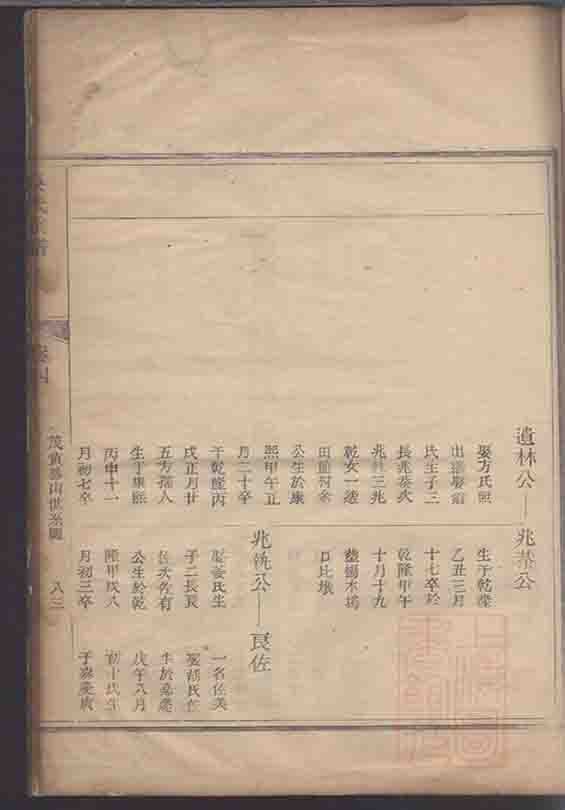 遺林公——兆棻公
娶方氏熙
出繼
氏生子三
長兆棻次
兆 三兆
乾女一適
田面村余
公生於康
熙甲午正
月二十卒
于乾隆丙
戌正月廿
五方孺人
生丁康熙
丙申十一
月初七卒
生于乾隆
乙丑三月
十七卒於
乾隆甲午
十月十九
口比墩
兆 公——良佐
娶姜氏生
子二長良
佐次佐有
公生於乾
隆甲戌八
月初三卒
一名佐美
娶胡氏佐
生於嘉慶
戊午八月
初十氏生
于嘉慶庚
氏宗譜
卷四
茂黃 山世系圖
八三
上海圖
書館藏